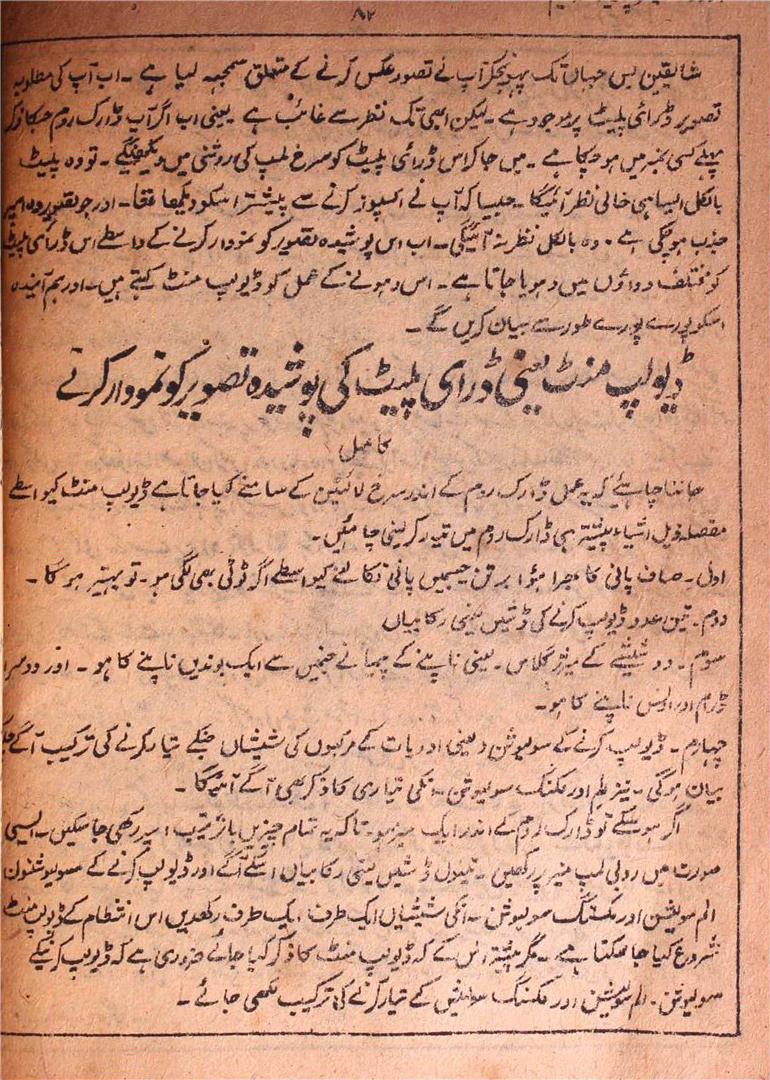 ۸۲
شایقین بس جہاں تک پہونچکر آپ نے تصور عکس کرنے کے متعلق سمجہہ لیا ہے ۔ اب آپ کی مطلوبہ
تصویر ڈرائی پلیٹ پر موجود ہے ۔ لیکن ابھی تک نظر سے غائب ہے یعنی اب اگر آپ ڈارک روم جسکا ذکر
پہلے کسی نمبر میں ہو چکا ہے ۔ میں جا کر اس ڈرائی پلیٹ کو سرخ لمپ کی روشنی میں دیکھینگے ۔ تو وہ پلیٹ
بالکل ایسا ہی خالی نظر آئیگا ۔ جیسا کہ آپ نے اکسپوز کرنے سے پیشتر اسکو دیکھا تھا ۔ اور جو تصویر
جذب ہو چکی ہے ۔ وہ بالکل نظر نہ آئیگی ۔ اب اس پوشیدہ تصویر کو نمودار کرنے کے واسطے اس ڈرائی پلیٹ
کو مختلف دواؤں میں دھویا جاتا ہے ۔ اس دھونے کے عمل کو ڈیولپ منٹ کہتے ہیں ۔ اور ہم آیندہ
اسکو پورے پورے طور سے بیان کریں گے ۔
ڈیولپ منٹ یعنی ڈرای پلیٹ کی پوشیدہ تصویر کو نمودار کرنے
کا عمل
جاننا چاہئیے کہ یہ عمل ڈارک روم کے اندر سرخ لالٹین کے سامنے کیا جاتا ہے ڈیولپ منٹ کیواسطے
مفصلہ ذیل اشیاء پیشتر ہی ڈارک روم میں تیار کر لینی چاہئیں ۔
اول ۔ صاف پانی کا بھرا ہؤا برتن جسمیں پانی نکالنے کیواسطے اگر ٹوٹی بھی لگی ہو ۔ تو بہتر ہو گا ۔
دوم ۔ تین عدد ڈیولپ کرنے کی ڈشیں یعنی رکابیاں
سوم ۔ دو شیشے کے میژر گلاس ۔ یعنی ناپنے کے پیمانے جنمیں سے ایک بوندیں ناپنے کا ہو ۔ اور دوسرا
ڈرام اور اونس ناپنے کا ہو ۔
چہارم ۔ ڈیولپ کرنے کے سولیوشن یعنی ادویات کے مرکبوں کی شیشیاں جنکے تیار کرنے کی ترکیب آگے
بیان ہوگی ۔ نیز ایلم اور فکسنگ سولیوشن ۔ انکی تیاری کا ذکر بھی آگے آئیگا ۔
اگر ہو سکے تو ڈارک روم کے اندر ایک میز ہو ۔ تاکہ یہ تمام چیزیں باترتیب اسپر رکھی جا سکیں ۔ ایسی
صورت میں روبی لمپ میز پر رکھیں ۔ تینوں ڈشیں یعنی رکابیاں اسکے آگے اور ڈیولپ کرنے کے سولیوشنوں
الم سولیشن اور فکسنگ سولیوشن ۔ انکی شیشیاں ایک طرف ایک طرف رکھدیں اس انتظام کے ڈیولپ منٹ
شروع کیا جا سکتا ہے ۔ مگر پیشتر اس کے کہ ڈیولپ منٹ کا ذکر کیا جائے ضروری ہے کہ ڈیولپ کرنیکے
سولیوشن ۔ الم سولیشن اور فکسنگ سولیشن کے تیار کرنے کی ترکیب لکھی جائے ۔